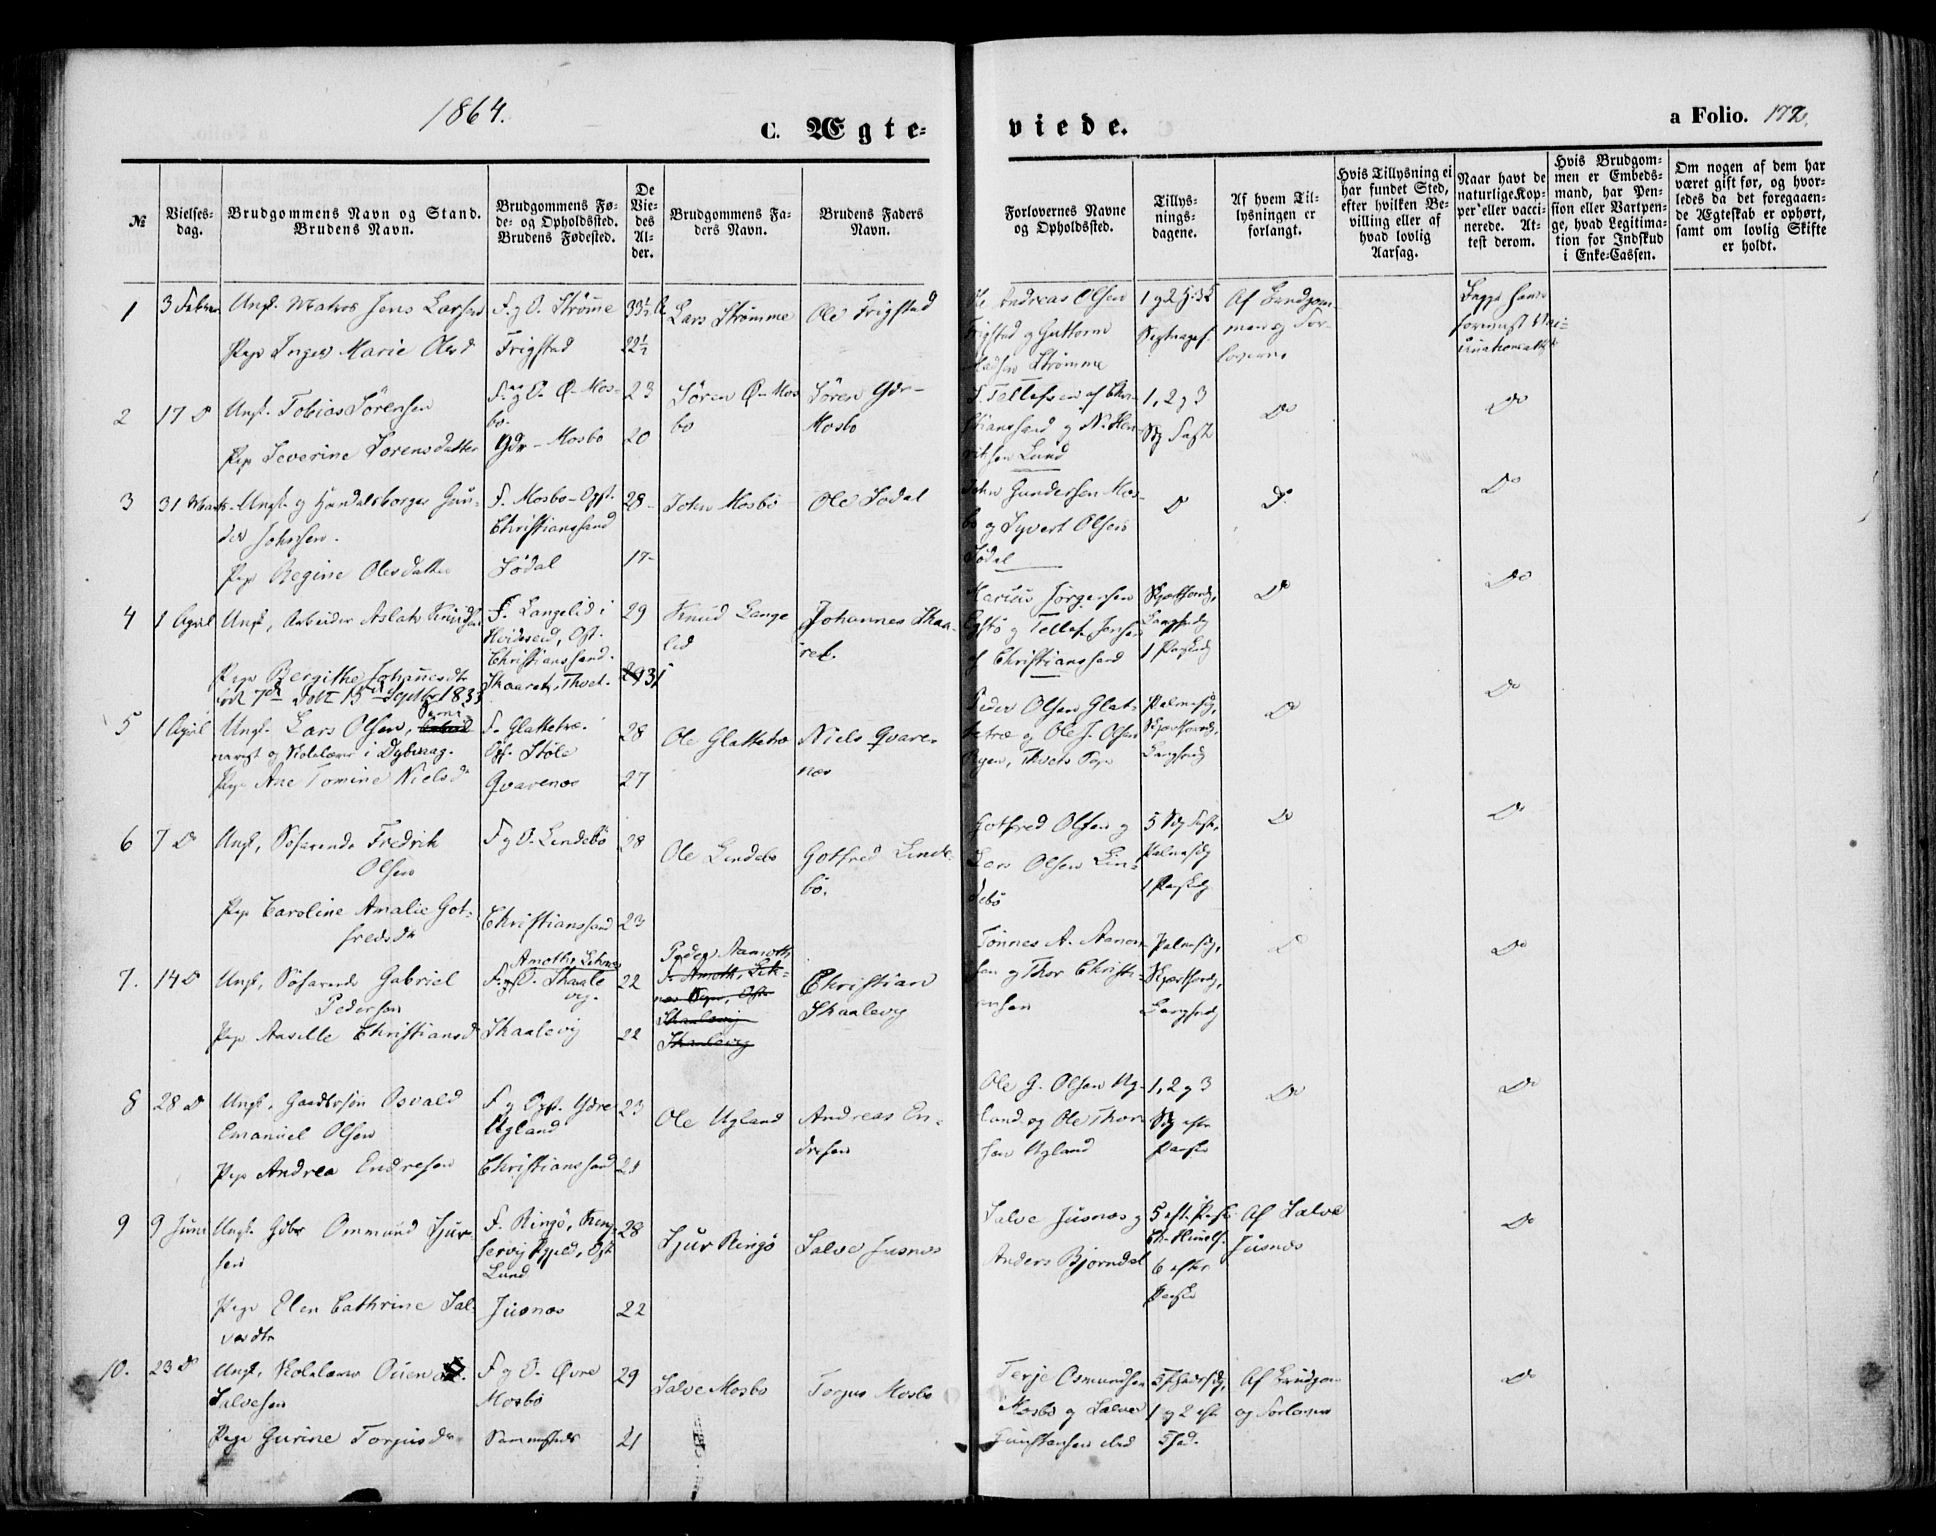 1864.
C. Ægte-
viede.
a Folio. 172.
№
Vielses-
dag.
Brudgommens Navn og Stand.
Brudens Navn.
Brudgommens Fø-
de- og Opholdssted.
Brudens Fødested.
De
Vie-
des
Al-
der.
Brudgommens Fa-
ders Navn.
Brudens Faders
Navn.
Forlovernes Navne
og Opholdssted.
Tillys-
nings-
dagene.
Af hvem Til-
lysningen er
forlangt.
Hvis Tillysning ei
har fundet Sted,
efter hvilken Be-
villing eller af
hvad lovlig
Aarsag.
Naar havt de
naturlige Kop-
per eller vacci-
nerede. At-
test derom.
Hvis Brudgom-
men er Embeds-
mand, har Pen-
sion eller Vartpen-
ge, hvad Legitima-
tion for Indskud
i Enke-Cassen.
Om nogen af dem har
været gift før, og hvor-
ledes da det foregaaen-
de Ægteskab er ophørt,
samt om lovlig Skifte
er holdt.
1
Ungk. Matros Jens Larsen
Pige Inger Marie Olsd
F. g O. Strømme
Frigstad
Lars Strømme
Ole Frigstad
Andreas Olsen
Frigstad g Guttorm
Madsen Strømme
2
17 Do
Ungk. Tobias Sörensen
Pige Severine Sorensdatter
F. og O. Ø-Mos-
bo.
Ydr-Mosbo
23
20
Sören Ø-Mos
bo
Sören Ydr-
Mosbo
S. Tellefsen af Chri-
stianssand g N. Hen-
riksen Lund
1, 2 g 3
Sg Fast
Do
Do
3
31 Marts
Ungk. g Handelsborger Gun-
der Johnsen.
Pige Regine Olesdatter
F. Mosbo-Opt.
Christianssand
Södal
28
17
John Mosbö
Ole Sodal
John Gundersen Mos-
bo g Syvert Olsen
Södal
Do
Do
Do
4
1 April
Ungk, Arbeider Aslak Knudsen
Pige Bergithe Johannesdtr
født 7de Dobt 15de Septbr 1833
F. Langelid i
Hvideseid, Opt.
Christianssand.
Skaaret, Thvet.
29
31
Knud Lange
lid
Johannes Skaa-
ret.
Marius Jörgensen
g Tellef Jensen
af Christianssand
Skjærthorsdg,
Langfredg
1 Paaskedg
Do
Do
5
1 April
Ungk. Lars Olsen,
narist og Skolelærer i Dybvaag.
Pige Ane Tomine Nielsdr
F. Glattetræ.
Opt. Støle
Qvarenes
28
27
Ole Glattetræ
Niels Qvare-
nes
Peder Olsen Glat-
tetræ g Ole J. Olsen
Ryen, Thvets Sogn
Palmesdg,
Skjærthorsdg,
Langfredg
Do
Do
6
7 Do
Ungk, Søfarende Fredrik
Olsen
Pige Caroline Amalie Got-
fredsdtr
F g O. Lindebö
Christianssand
28
23
Ole Lindebo
Gotfred Linde-
bö.
Gotfred Olsen g
Lars Olsen Lin-
debö
5 Sdg Fast,
Palmesdg
1 Paaskedg
Do
Do
7.
14 Do
Ungk, Søfarende Gabriel
Pedersen
Pige Aasille Christiansd
F. g O. Skaale
vig.
Skaalevig
22
22
Peder Aamoth
Christian
Skaalevig
Tönnes A. Aanen-
sen g Thor Christi-
ansen
Palmesdg,
Skjærthorsdg,
Langfredg
Do
Do
8
28 Do
Ungk. Osvald
Emanuel Olsen
Pige Andrea Endresen
F g Opt. Ydre
Ugland
Christianssand
23
21
Ole Ugland
Andreas En-
dresen
Ole G. Olsen Ug-
land og Ole Thor-
sen Ugland
1, 2 g 3
Sdg efter
Paaske
Do
Do
9
9 Juni
Ungk. Gdbr Ommund Sjur-
sen
Pige Elen Cathrine Sal-
vesdtr
F. Ringö,
Lund
Jusnes
28
22
Sjur Ringö
Salve Jusnes
Salve Jusnes g
Anders Bjørndal
5 eft. Paaske
Ch. Himelf.
6 efter
Paaske
Af Salve
Jusnes
Do
10.
23 Do
Ungk, Skolelærer Ouen
Salvesen
Pige Gurine Torjusdr
F g O. Øvre
Mosbö
Sammesteds
29
21
Salve Mosbo
Torjus Mosbo
Terje Osmundsen
Mosbo g Salve
1 g 2 eft
Af Brudgom
og Forlover
Do